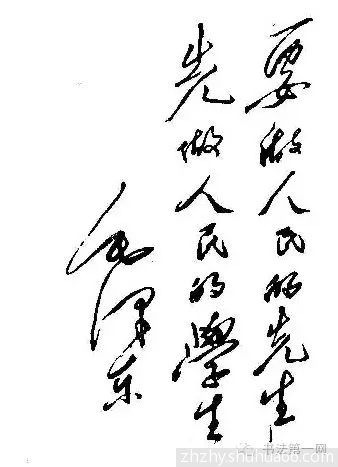 要做人民的先生
先做人民的學生
毛泽东
书法第一网
zhzhyshuhua66.com